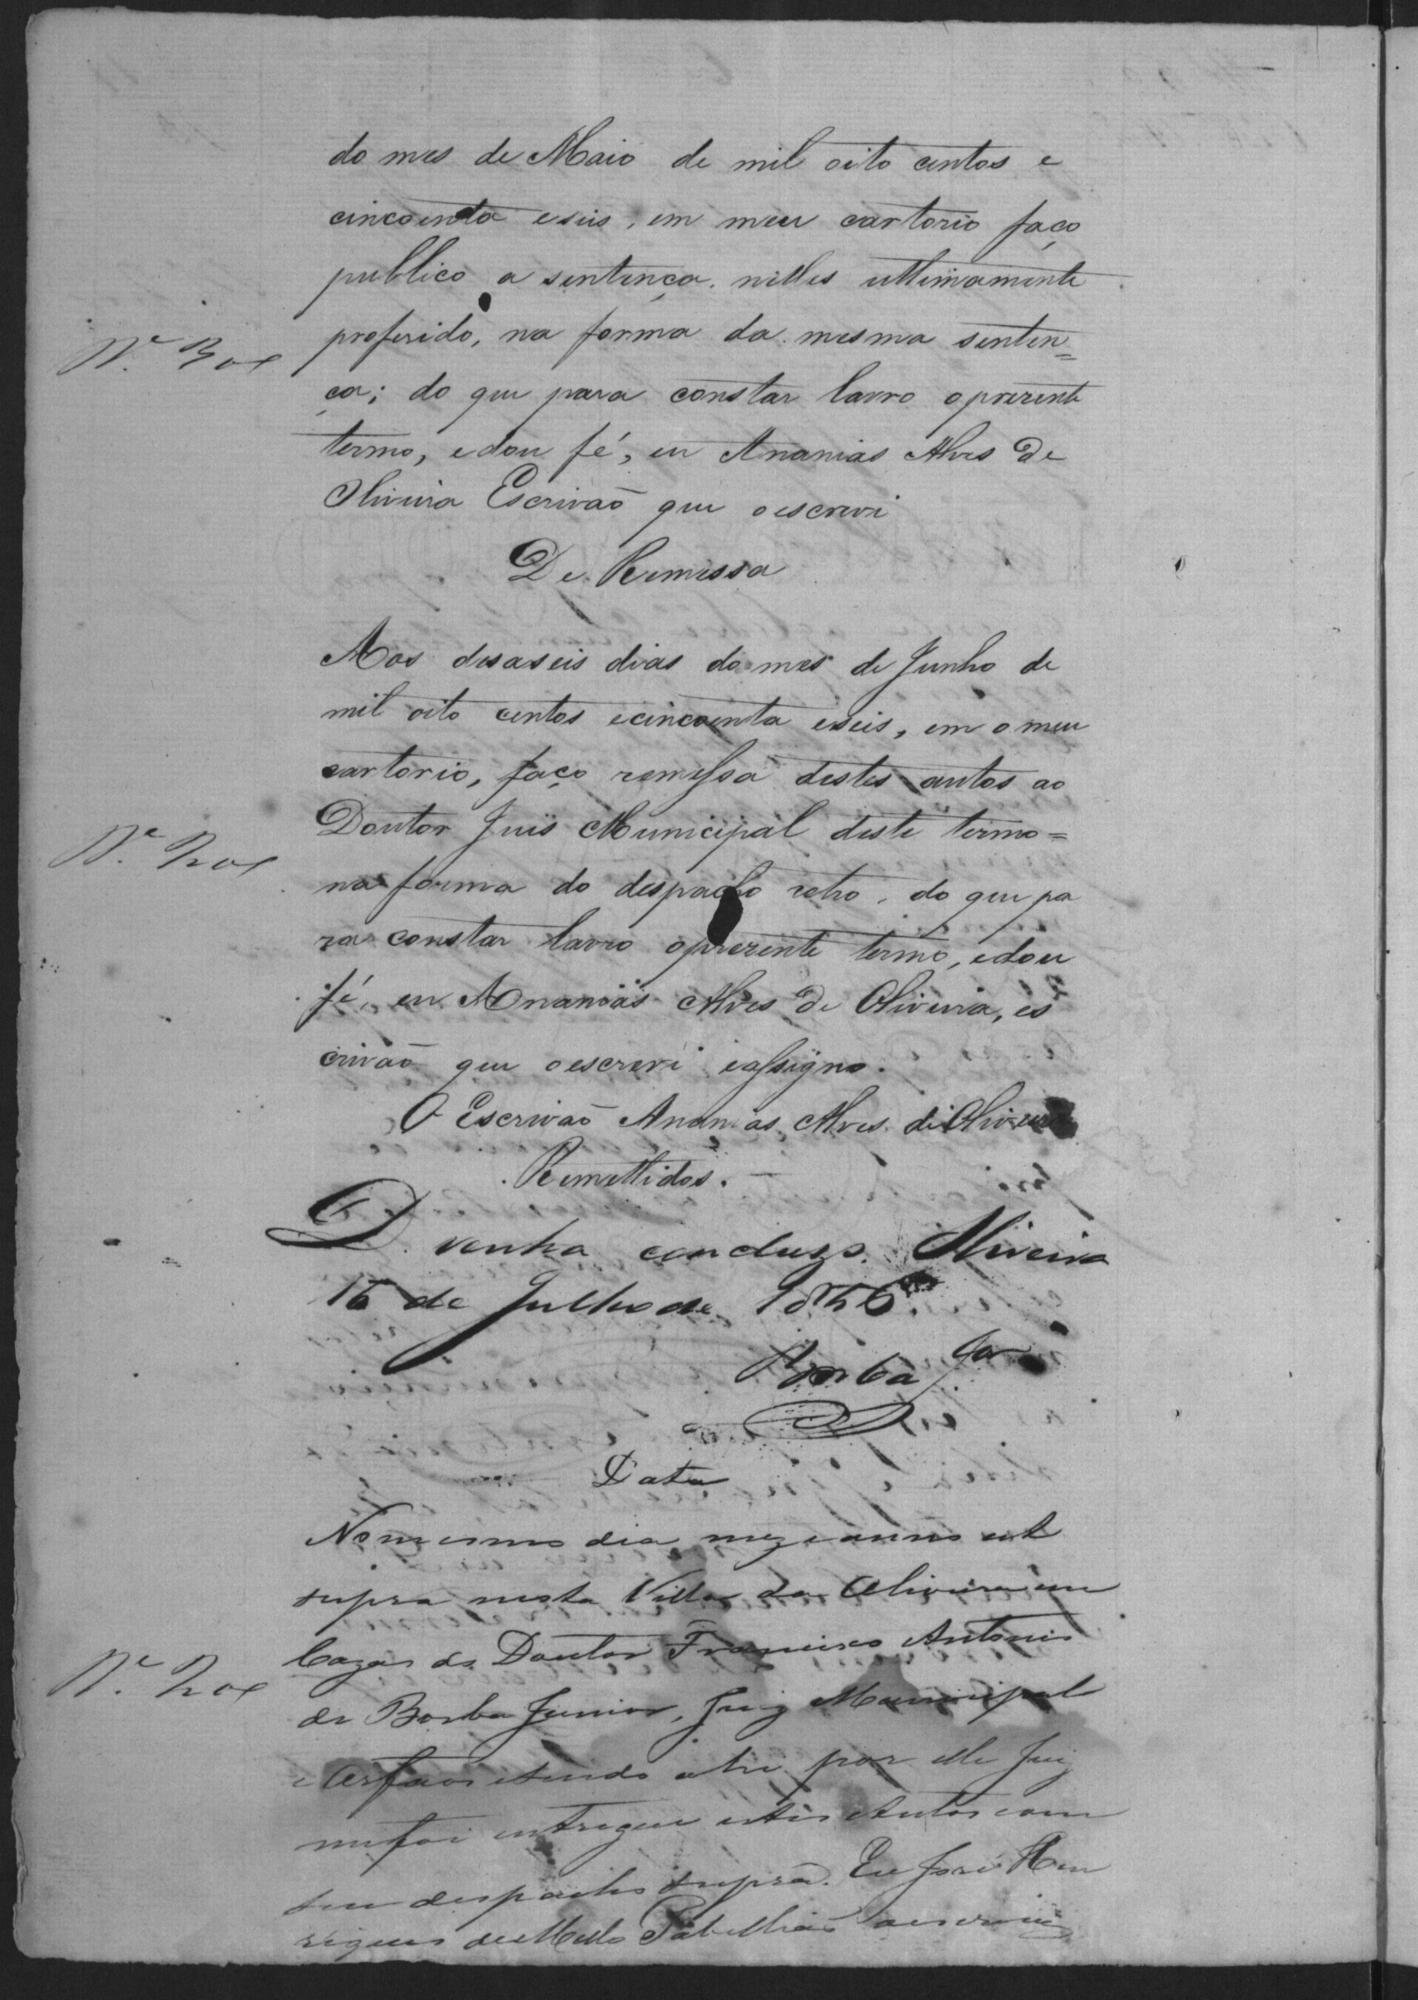 do mes de Maio de mil oito centos e
cincoenta eseis, em meu cartorio faço
publico a sentença nelles ultimamente
proferido, na forma da mesma senten=
ça; do que para constar lavro oprezente
termo, edou fé, eu Ananias Alves de
Oliveira Escrivaõ que oescrevi
De Remessa
Aos desaseis dias do mes de Junho de
mil oito centos ecincoenta eseis, em o meu
cartorio, faço remessa destes autos ao
Doutor Juis Municipal deste termo=
na forma do despacho retro, do que pa
ra constar lavro oprezente termo, edou
fé, eu Ananias Alves de Oliveira, es
crivaõ que oescrevi eassigno.
O Escrivaõ Ananias Alves de Oliveira
Remettidos.
D. venha concluso. Oliveira
16 de Julho de 1856.
Borba Jor
Data
No mesmo dia mez e anno ut
supra nesta Villa da Oliveira em
Cazas do Doutor Francisco Antonio
de Borba Junior, Juiz Municipal
e Orfaos sendo ahi por elle Juiz
me foi entregue estes Autos com
seu despacho supra. Eu José Hen
riques de Mello Tabelliaõ oescrevi